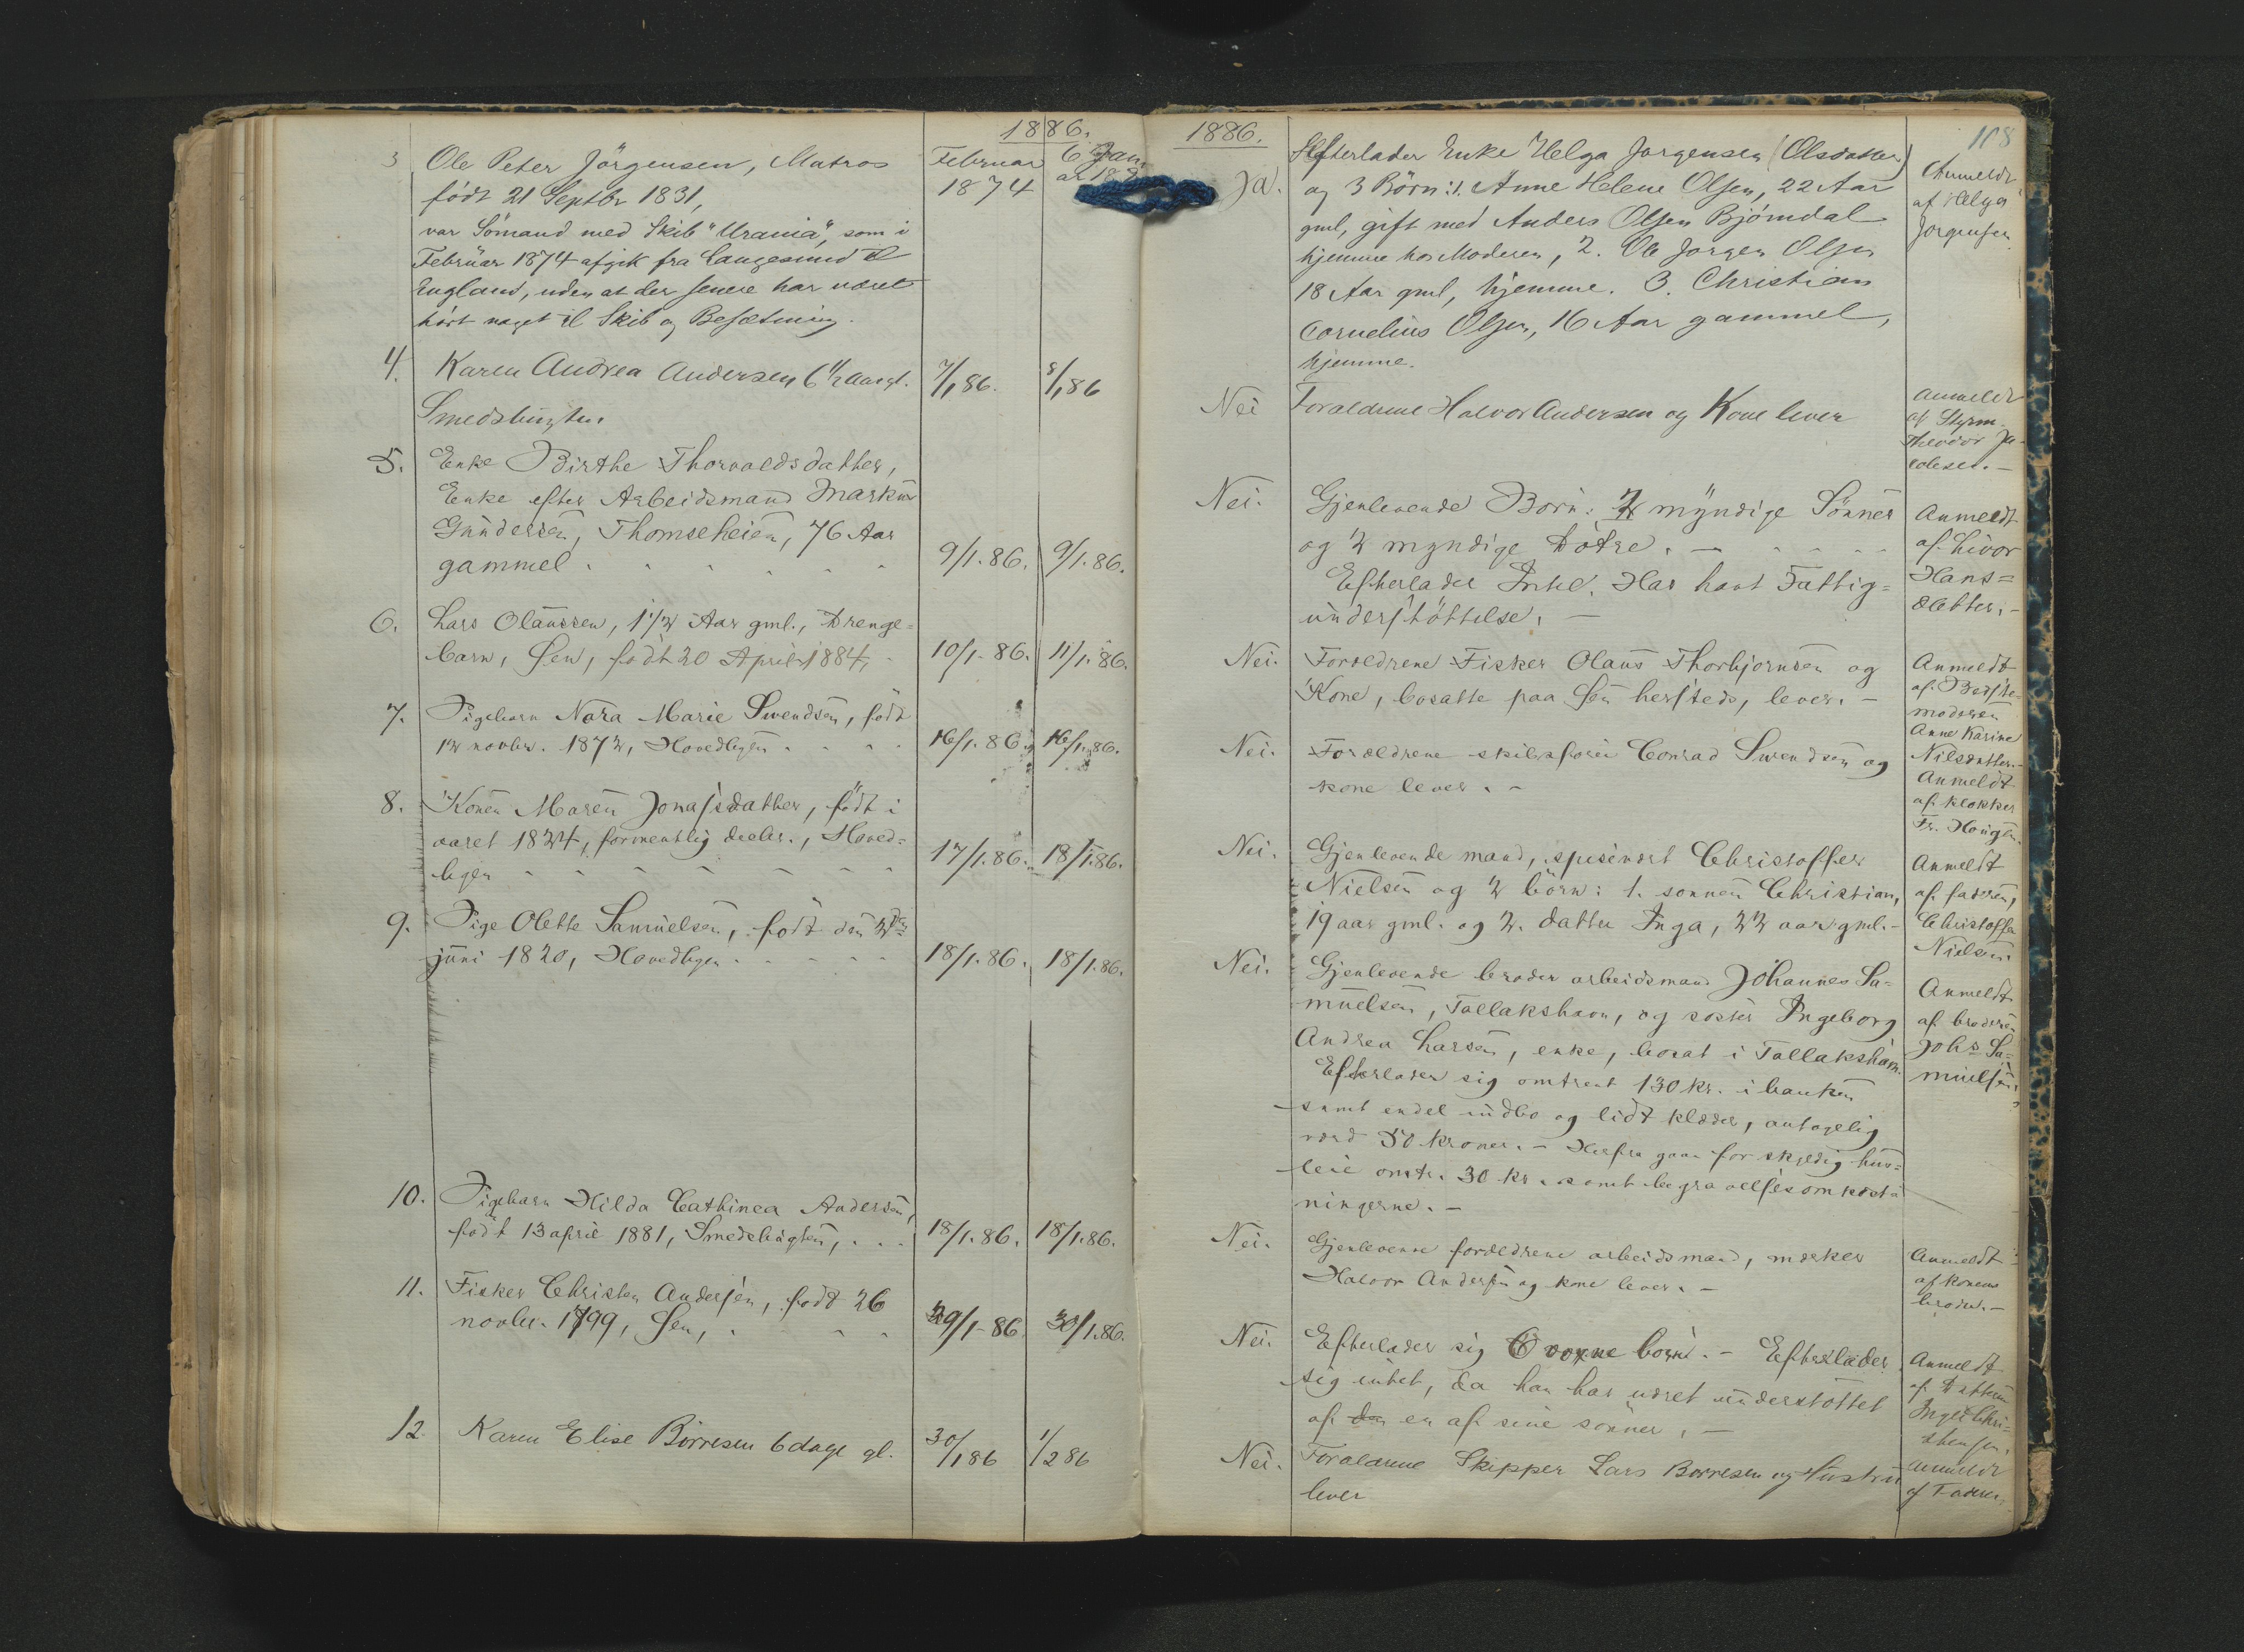 1886.
3 Ole Peter Jörgensen, Matros
födt 21 Septbr 1831,
var Sömand med Skib "Urania", som i
Februar 1874 afgik fra Langesund til
England, uden at der senere har været
hört noget til Skib og Besætning.
Februar
1874
6 Jan.
4. Karen Andrea Andersen 6 1/2 Aar gl. 7/1 86. 8/1 86
Smedsbugten
5. Enke Birthe Thorvaldsdatter,
Enke efter Arbeidsmand Markus
Gundersen, Thomseheien, 76 Aar
gammel. 9/1. 86. 9/1. 86.
6. Lars Olaussen, 1 1/2 Aar gml., Drenge=
barn, Øen, födt 20 April 1884, 10/1- 86. 11/1. 86.
7. Pigebarn Nora Marie Swendsen, födt
12 novbr. 1872, Hovedbyen. 16/1. 86. 16/1. 86.
8. Konen Maren Jonasdatter, födt i
aaret 1824, formentlig decbr., Hoved=
byen 17/1. 86. 18/1. 86.
9. Pige Olette Samuelsen, födt den 2den
juni 1820, Hovedbyen. 18/1. 86. 18/1. 86.
10. Pigebarn Hilda Cathinca Andersen,
födt 13 april 1881, Smedsbugten, 18/1. 86. 18/1. 86.
11. Fisker Christen Andersen, födt 26
novbr. 1799, Øen, 29/1- 86 30/1. 86.
12. Karen Elise Börresen 6 dage gl. 30/1 86 1/2 86
1886.
118
Ja. Efterlader Enke Helga Jørgensen (Olsdatter)
og 3 Börn: 1. Anne Helene Olsen, 22 Aar
gml, gift med Anders Olsen Bjørndal
hjemme hos Moderen, 2. Ole Jørgen Olsen
18 Aar gml, hjemme. 3. Christian
Cornelius Olsen, 16 Aar gammel,
hjemme.
Anmeldt
af Helga
Jørgensen
Nei Forældrene Halvor Andersen og Kone lever
Anmeldt
af Styrm.
Theodor Ja-
cobsen.-
Nei. Gjenlevende Børn: 2 myndige Sönner
og 2 myndige Døtre. -
Efterlader Intet. Har havt Fattig=
understöttelse. -
Anmeldt
af Livor
Hans=
datter.-
Nei. Forældrene Fisker Olaus Thorbjørnsen og
Kone, bosatte paa Øen hersteds, lever. -
Anmeldt
af Bedste-
moderen
Anne Karine
Nilsdatter.-
Nei. Forældrene skibsfører Conrad Swendsen og
kone lever. -
Anmeldt
af klokker
Fr. Haugen.
Nei. Gjenlevende mand, spisevært Christoffer
Nielsen og 2 börn: 1. sønnen Christian,
19 aar gml. og 2. datter Inga, 22 aar gml.-
Anmeldt
af faderen,
Christoffer
Nielsen.
Nei. Gjenlevende broder arbeidsmand Johannes Sa=
muelsen, Tallakshavn, og søster Ingeborg
Andrea Larsen, enke, bosat i Tallakshavn.
Efterlader sig omtrent 130 kr. i banken
samt endel indbo og lidt klæder, antagelig
værd 50 kroner. - Herfra gaar for skyldig hus=
leie omtr. 30 kr. samt begravelsesomkost=
ningerne. -
Anmeldt
af broderen
Johs Sa=
muelsen.
Nei. Gjenlevende forældrene arbeidsmand, mærker
Halvor Andersen og kone lever. -
Anmeldt
af konens
broder.-
Nei. Efterlader sig 6 voxne börn. - Efterlader
sig intet, da han har været understøttet
af den en af sine sønner. -
Anmeldt
af Datteren
Inger Chri=
stensen.
Nei. Forældrene Skipper Lars Borresen og Hustru
lever
Anmeldt
af Faderen.